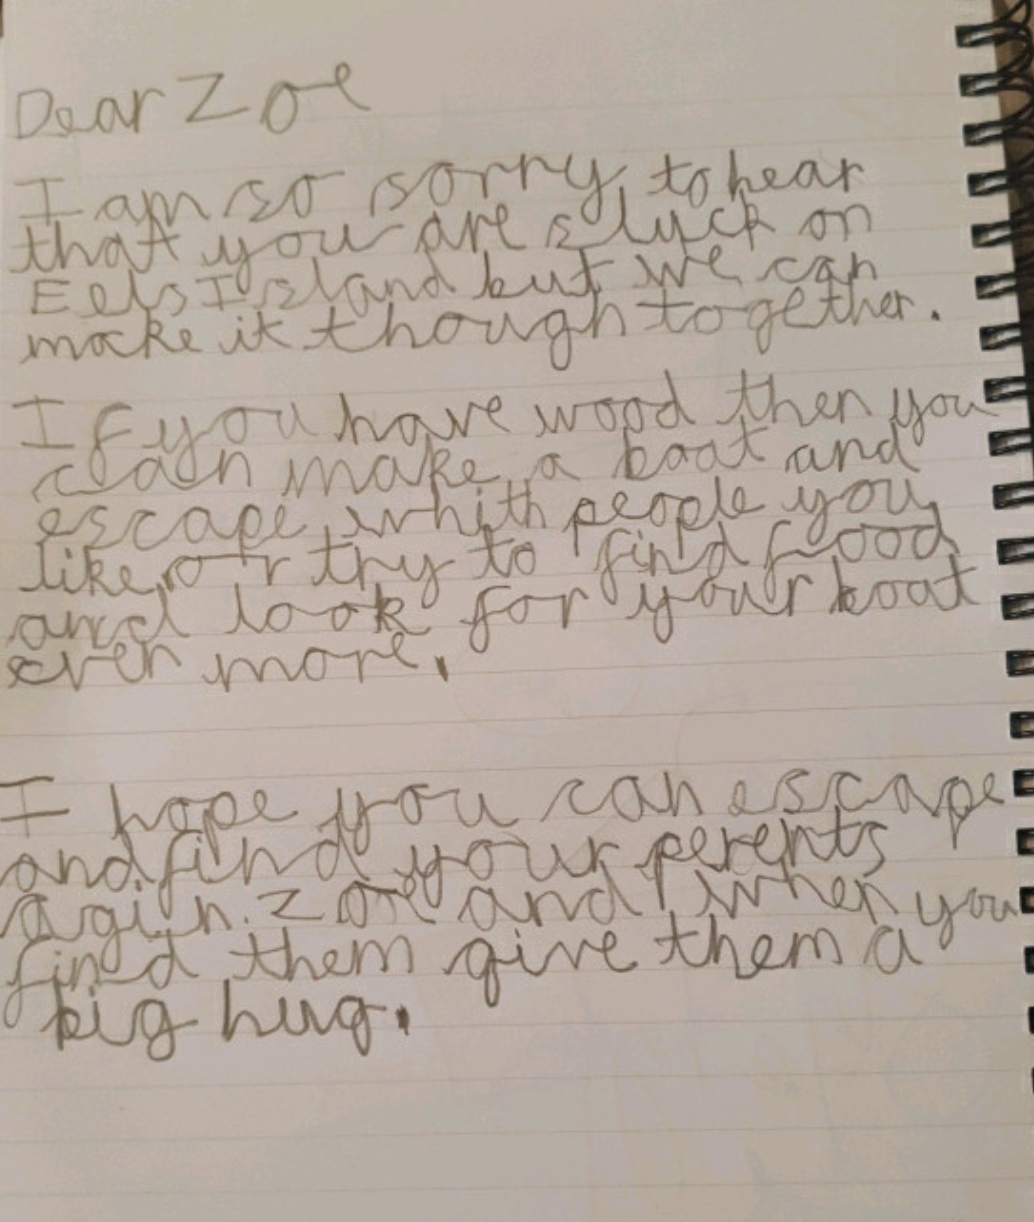 Dear Zoe
I am so sorry to hear
that you are stuck on
Eels Island but we can
make it though together.
If you have wood then you
can make a boat and
escape whith people you
like or try to find food
and look for your boat
even more.
I hope you can escape
and find your perents
agin. Zoe and when you
find them give them a
big hug.